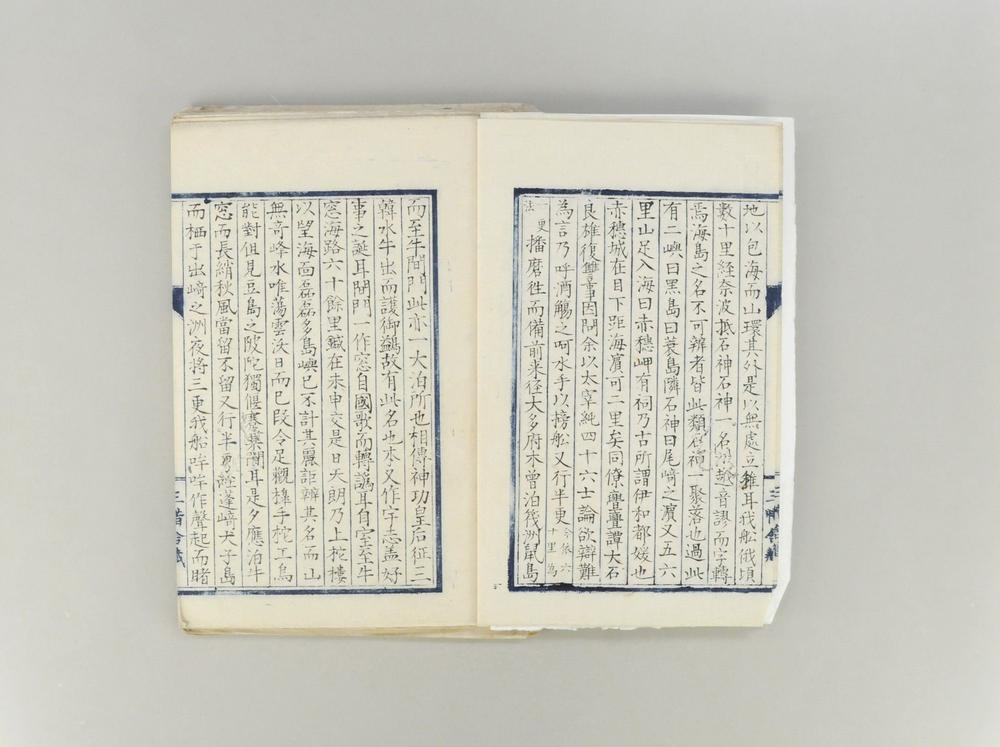 地以包海而山環其外是以無處立錐耳我船俄頃
數十里経奈波抵石神石神一名音謬而字轉
焉海島之名不可辨者皆此類石神聚落也過此
有二嶼曰黒島曰蔓島隣石神曰尾﨑之濵又五六
里山足入海曰赤穗岬有祠乃古所謂伊和都媛也
赤穗城在目下距海濵可二里矣同僚輿疊譚大石
良雄復讐事因問余以太宰純四十六士論欲辯難
為言乃呼酒觴之呵水手以搒舩又行半更今依六十里為
更法播磨徃而備前来径大多府木曾泊筏洲鼠島
而至牛間門此亦一大泊所也相傳神功皇后征三
韓水牛出而護御鷁故有此名也来又作宇志盖好
事之誕耳間門一作窓自國歌而轉譌耳自室至牛
窓海路六十餘里鍼在未申交是日天朗乃上柁樓
以望海面磊磊多島嶼已不計其麗詎辨其名而山
無竒峰水唯蕩雲沃日而已叚令足觀棹手柁工烏
能對伹見豆島之陂陀獨偃蹇蘭耳是夕應泊牛
窓而長綃秋風當留不留又行半更経蓬﨑犬子島
而栖于出﨑之洲夜將三更我船哞哞作聲起而睹